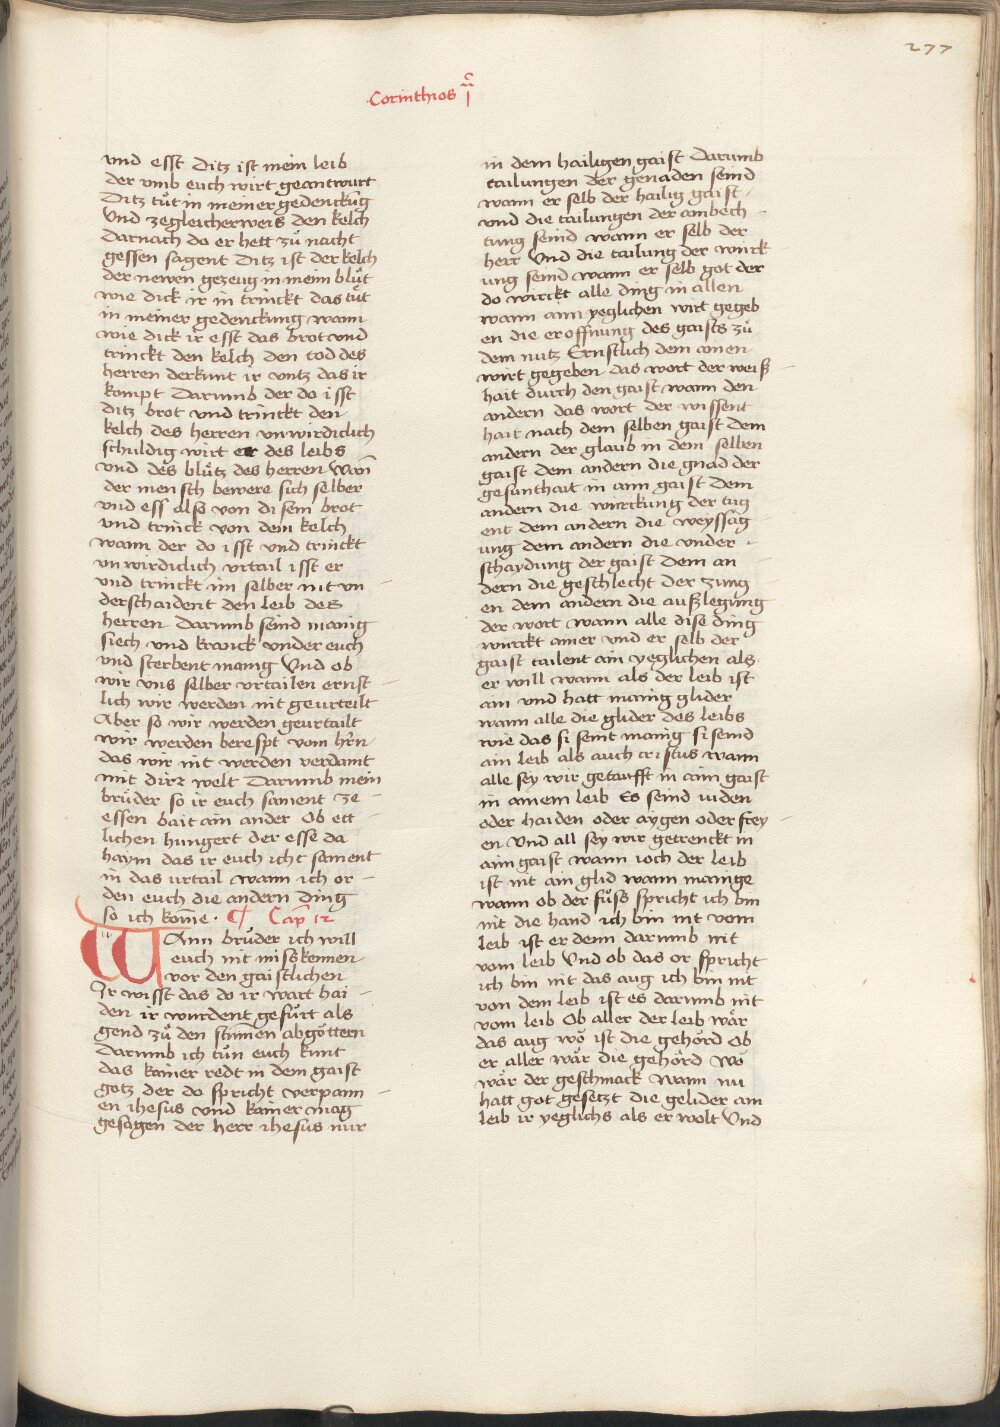 277
Corinthios I
vnd esst Ditz ist mein leib
der vmb euch wirt geantwurt
Ditz tuͦt in meiner gedenckung
Vnd zegleicherweis den kelch
Darnach do er hett zuͦ nacht
gessen sagent Ditz ist der kelch
der newen gezeug in meim bluͦt
wie dick ir in trinckt das tuͦt
in meiner gedenckung wann
wie dick ir esst das brot vnd
trinckt den kelch den tod des
herren derkunt ir vntz das ir
kompt Darumb der do isst
ditz brot vnd trinckt den
kelch des herren vnwirdiclich
schuldig wirt er des leibs
vnd des bluͦtz des herren Wan̅
der mensch bewere sich selber
vnd ess also von disem brot
vnd trinck von dem kelch
wann der do isst vnd trinckt
vnwirdiclich vrtail isst er
vnd trinckt im selber nit vn
derschaident den leib des
herren Darumb seind manig
siech vnd kranck vnder euch
vnd sterbent manig Vnd ob
wir vns selber vrtailen ernst
lich wir werden nit geurteilt
Aber so wir werden geurtailt
wir werden berespt vom hr̅n
das wir nit werden verdamt
mit dirr welt Darumb mein
bruͤder so ir euch sament ze
essen bait ain ander Ob ett
lichen hungert der esse da
haym das ir euch icht sament
in das urtail wann ich or
den euch die andern ding
so ich kom̅e · ¶ Cap̅ 12
WAnn bruͤder ich will
euch nit misskennen
vor den gaistlichen
Ir wisst das do ir wart hai
den ir wurdent gefuͤrt als
gend zuͦ den stum̅en abgoͤttern
Darumb ich tuͦn euch kunt
das kainer redt in dem gaist
gotz der do spricht verpann
en ihesus vnd kainer mag
gesagen der herr ihesus nur
in dem hailigen gaist Darumb
tailungen der genaden seind
wann er selb der hailig gaist
vnd die tailungen der ambech
tung seind wann er selb der
herr Vnd die tailung der wurck
ung seind wann er selb got der
do wirckt alle ding in allen
wann aim yeglichen wirt gegeb
en die eroffnung des gaists zuͦ
dem nutz Ernstlich dem ainen
wirt gegeben das wort der weiß
hait durch den gaist wann den
andern das wort der wissent
hait nach dem selben gaist dem
andern der glaub in dem selben
gaist dem andern die gnad der
gesunthait in aim gaist dem
andern die wurckung der tug
ent dem andern die weyssag
ung dem andern die vnder
schaydung der gaist dem an
dern die geschlecht der zung
en dem andern die außlegung
der wort wann alle dise ding
wurckt ainer vnd er selb der
gaist tailent aim yeglichen als
er will wann als der leib ist
ain vnd hatt manig glider
wann alle die glider des leibs
wie das si seint manig si seind
ain leib als auch cristus wann
alle sey wir getaufft in aim gaist
in ainem leib Es seind iuden
oder haiden oder aygen oder frey
en Vnd all sey wir getrenckt in
aim gaist wann ioch der leib
ist nit ain glid wann mainge
wann ob der fuͦss spricht ich bin
nit die hand ich bin nit vom
leib ist er denn darumb nit
vom leib Vnd ob das or spricht
ich bin nit das aug ich bin nit
von dem leib ist es darumb nit
vom leib Ob aller der leib waͤr
das aug wo ist die gehoͤrd Ob
er aller waͤr die gehoͤrd wo
waͤr der geschmack Wann nu
hatt got gesetzt die gelider am
leib ir yeglichs als er wolt Vnd